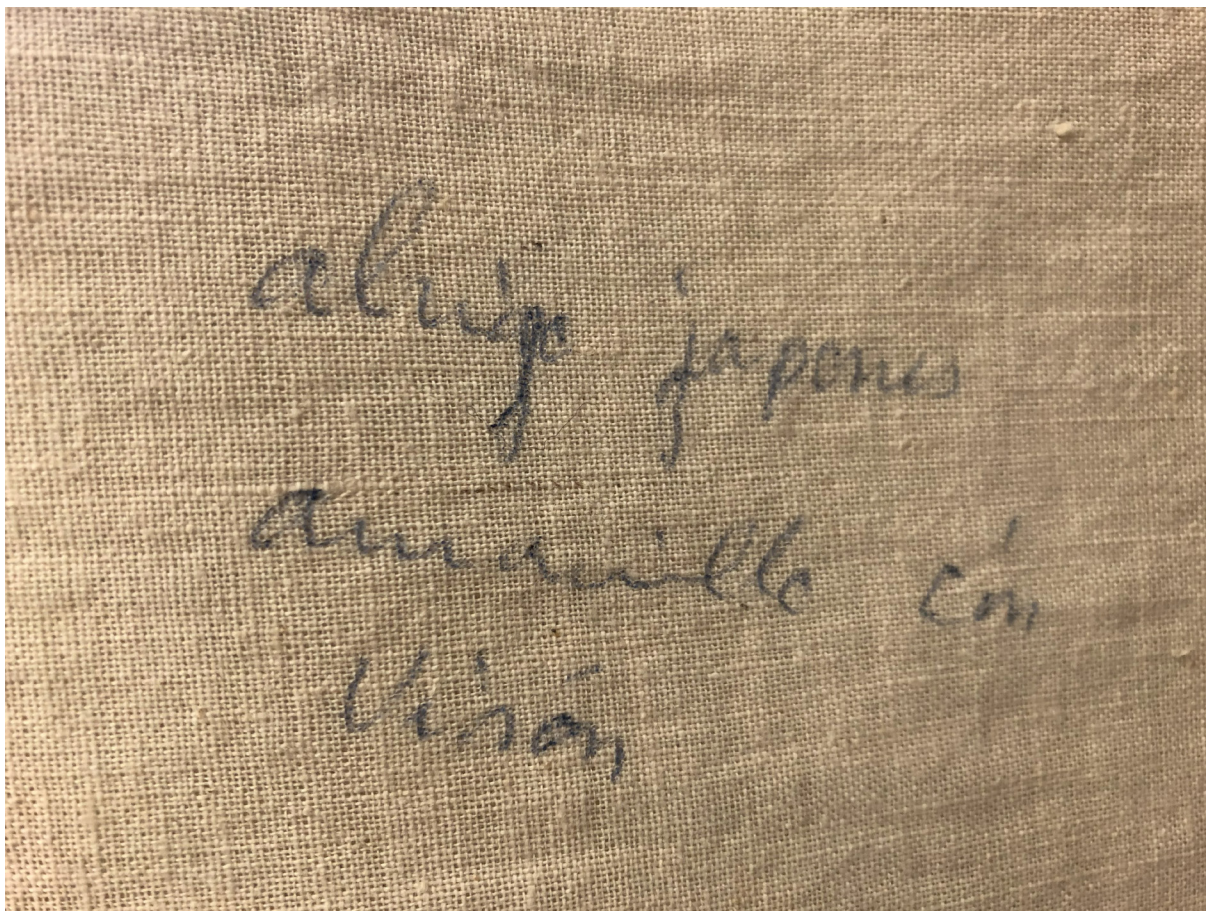 abrigo japones
amarillo cón
Visón